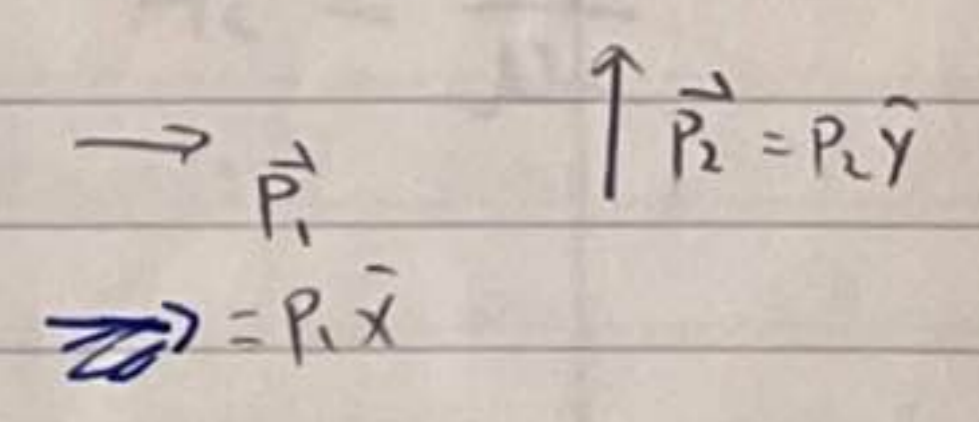 → P⃗₁
↑ P⃗₂ = P₂ŷ
= P₁x̂